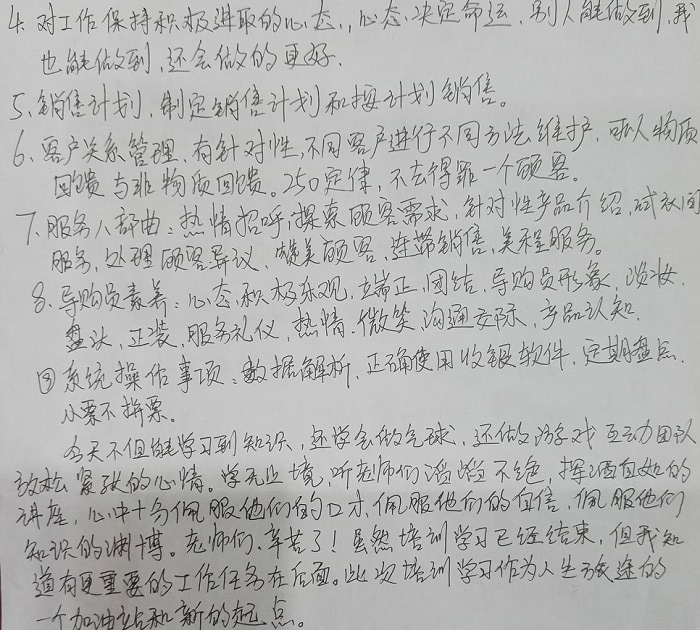 4. 对工作保持积极进取的心态，心态决定命运，别人能做到，我
也能做到，还会做的更好.
5、销售计划，制定销售计划和按计划销售。
6、客户关系管理，有针对性，不同客户进行不同方法维护，可以物质
回馈与非物质回馈。250定律，不去得罪一个顾客。
7、服务八部曲：热情招呼，探索顾客需求，针对性产品介绍，试衣间
服务，处理顾客异议，赞美顾客，连带销售，美程服务。
8、导购员素养：心态积极乐观，端正，团结，导购员形象，淡妆.
盘头，正装，服务礼仪，热情.微笑.沟通交际，产品认知.
⑨系统操作事项：数据解析，正确使用收银软件，定期盘点.
小票不拼票。
今天不但能学习到知识，还学会做气球，还做游戏互动团队
放松紧张的心情。学无止境，听老师们滔滔不绝，挥洒自如的
讲座，心中十分佩服他们的口才，佩服他们的自信，佩服他们
知识的渊博。老师们，辛苦了！虽然培训学习已经结束，但我知
道有更重要的工作任务在后面。此次培训学习作为人生旅途的
一个加油站和新的起点。